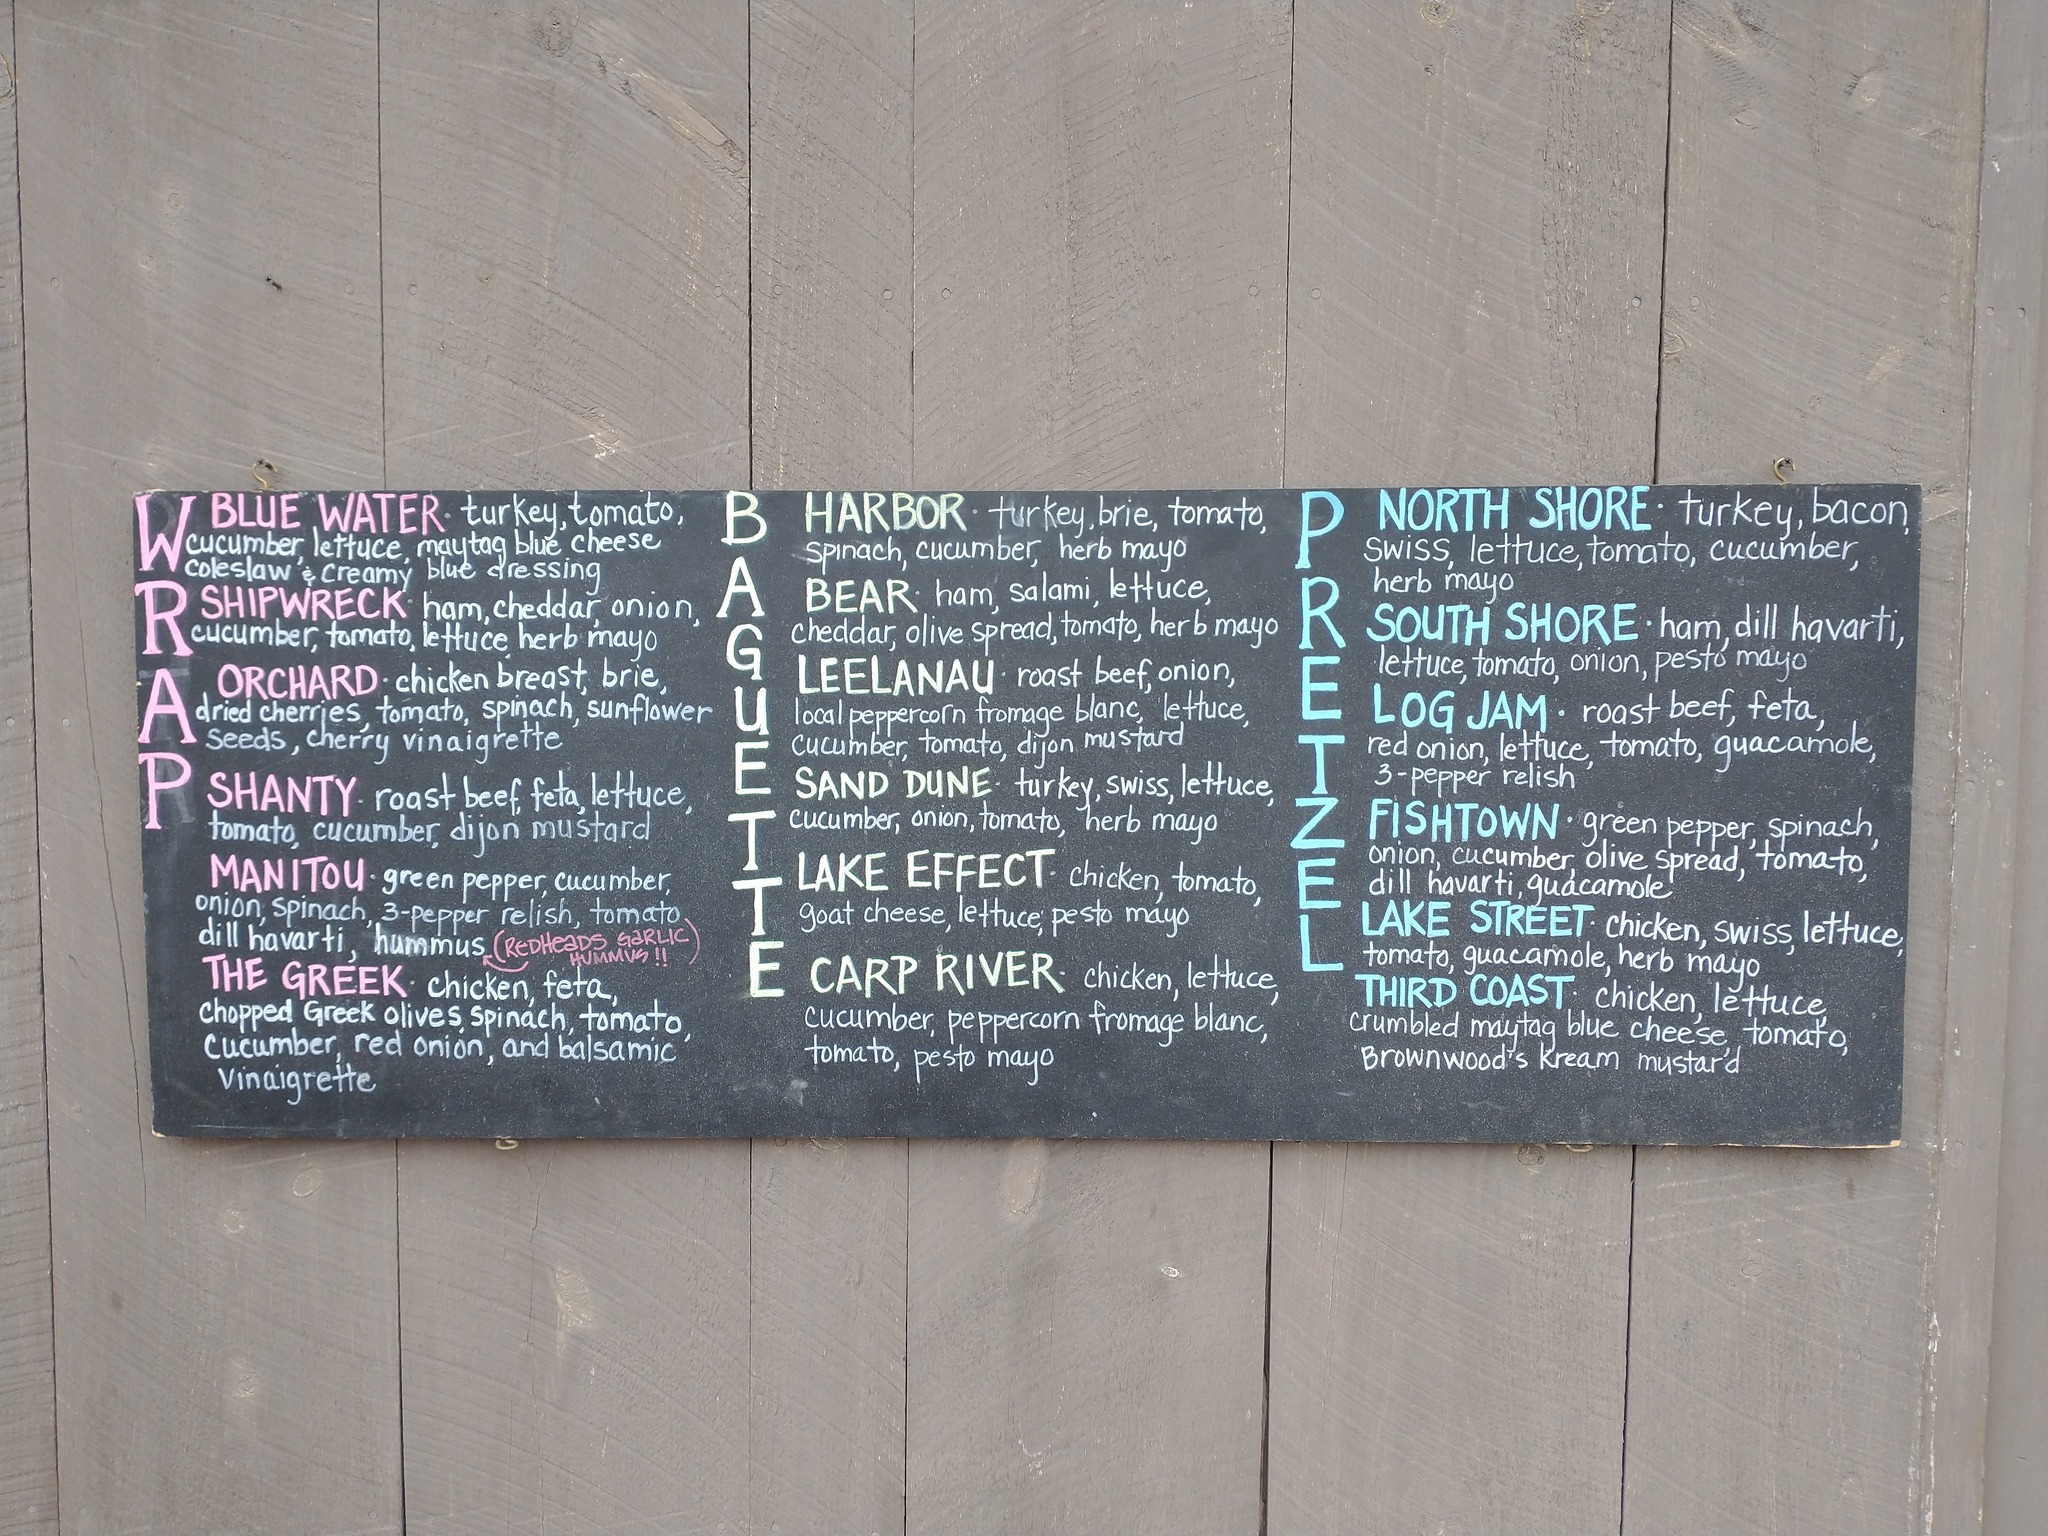 WRAP
BLUE WATER · turkey, tomato,
cucumber, lettuce, maytag blue cheese
coleslaw & creamy blue dressing
SHIPWRECK · ham, cheddar, onion,
cucumber, tomato, lettuce, herb mayo
ORCHARD · chicken breast, brie,
dried cherries, tomato, spinach, sunflower
seeds, cherry vinaigrette
SHANTY · roast beef, feta, lettuce,
tomato, cucumber, dijon mustard
MANITOU · green pepper, cucumber,
onion, spinach, 3-pepper relish, tomato,
dill havarti, hummus (REDHEADS GARLIC
HUMMUS!!)
THE GREEK · chicken, feta,
chopped Greek olives, spinach, tomato,
cucumber, red onion, and balsamic
vinaigrette
BAGUETTE
HARBOR · turkey, brie, tomato,
spinach, cucumber, herb mayo
BEAR · ham, salami, lettuce,
cheddar, olive spread, tomato, herb mayo
LEELANAU · roast beef, onion,
local peppercorn fromage blanc, lettuce,
cucumber, tomato, dijon mustard
SAND DUNE · turkey, swiss, lettuce,
cucumber, onion, tomato, herb mayo
LAKE EFFECT · chicken, tomato,
goat cheese, lettuce, pesto mayo
CARP RIVER · chicken, lettuce,
cucumber, peppercorn fromage blanc,
tomato, pesto mayo
PRETZEL
NORTH SHORE · turkey, bacon,
swiss, lettuce, tomato, cucumber,
herb mayo
SOUTH SHORE · ham, dill havarti,
lettuce, tomato, onion, pesto mayo
LOG JAM · roast beef, feta,
red onion, lettuce, tomato, guacamole,
3-pepper relish
FISHTOWN · green pepper, spinach,
onion, cucumber, olive spread, tomato,
dill havarti, guacamole
LAKE STREET · chicken, swiss, lettuce,
tomato, guacamole, herb mayo
THIRD COAST · chicken, lettuce,
crumbled maytag blue cheese, tomato,
Brownwood's Kream mustard